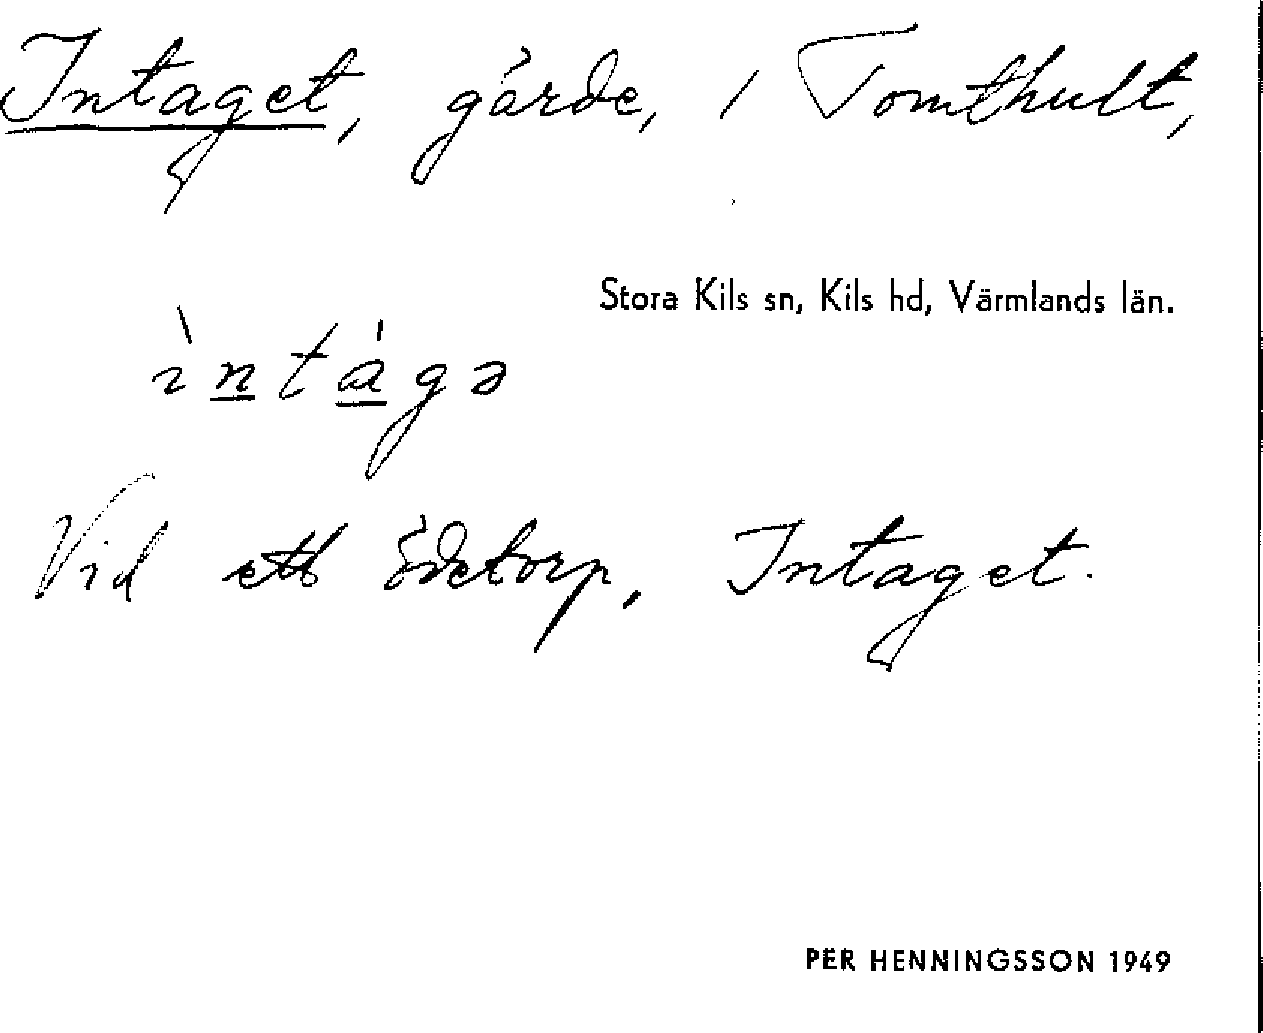 Intaget, gärde, i Tomthult,
Stora Kils sn, Kils hd, Värmlands län.
ìntágə
Vid ett ödetorp, Intaget.
PER HENNINGSSON 1949